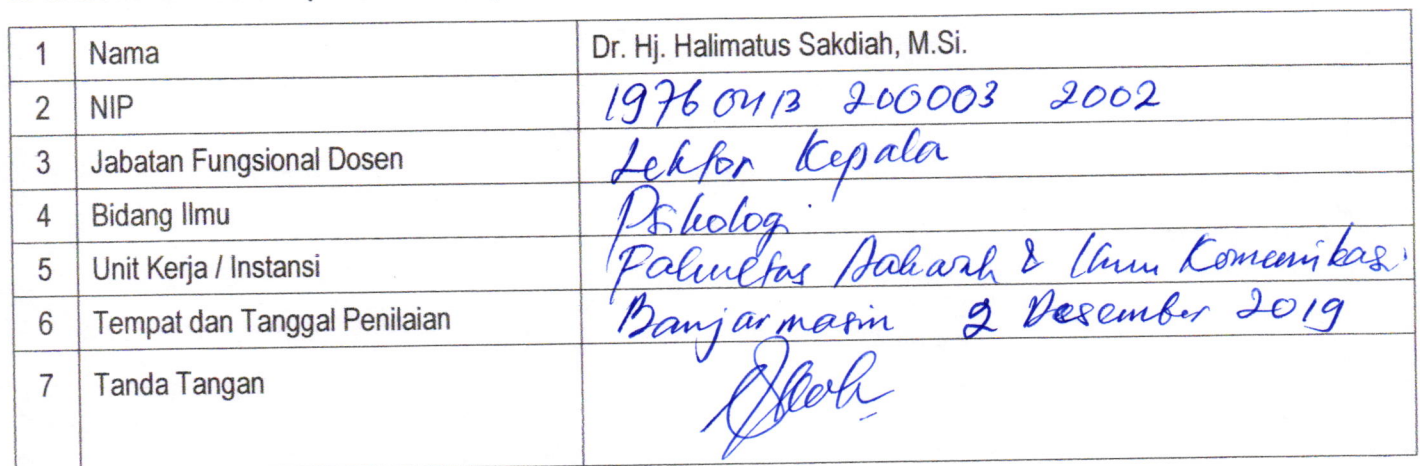 1 Nama Dr. Hj. Halimatus Sakdiah, M.Si.
2 NIP 19760413 200003 2002
3 Jabatan Fungsional Dosen Lektor Kepala
4 Bidang Ilmu Psikologi
5 Unit Kerja / Instansi Fakultas Dakwah & Ilmu Komunikasi
6 Tempat dan Tanggal Penilaian Banjarmasin 2 Desember 2019
7 Tanda Tangan